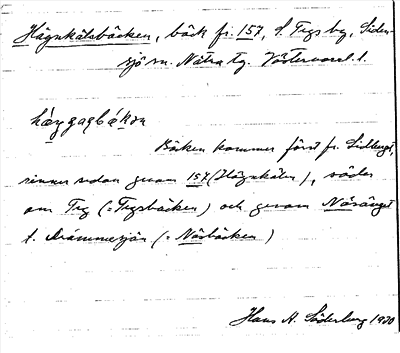 Högnkälsbäcken, bäck fr. 157, S. Tegs by, Siden-
sjö sn. Nätra tg. Västernorrl. l.
Bäcken kommer först fr. Sidberget,
rinner sedan genom 157 (Högnkälen), söder
om Teg (= Tegsbäcken) och genom Näsänget
t. Drömmesjön (= Näsbäcken)
Hans A. Söderberg 1930